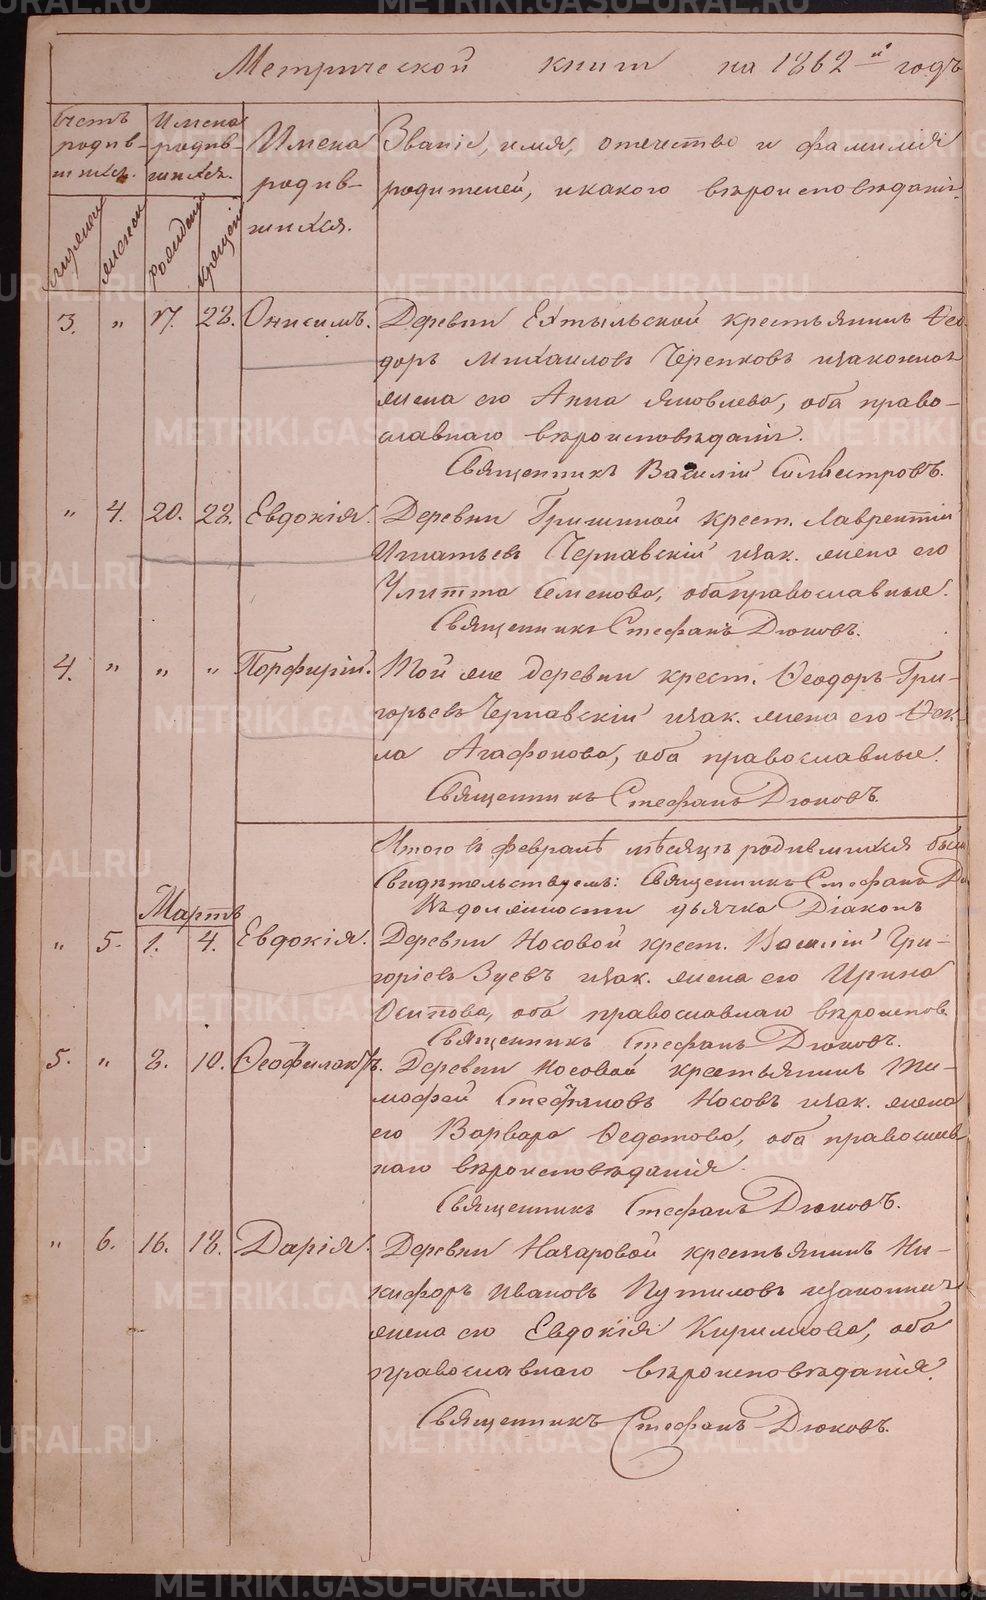 Метрической книги на 1862й годъ
Счетъ родив- шихся.
мужеска
женска
Имена родив- шихся.
рожденія
крещенія
Имена
родив-
шихся.
Званіе, имя, отечество и фамилія
родителей, и какого вѣроисповѣданія.
3. " 17. 22. Онисимъ. Деревни Ехтыльской крестьянинъ Ѳео-
доръ Михаиловъ Черепковъ изаконная
жена его Анна Яковлева, оба право-
славнаго вѣроисповѣданія.
Священникъ Василій Сильвестровъ.
" 4. 20. 22. Евдокія. Деревни Гришиной крест. Лаврентій
Игнатьевъ Чернавскій изак. жена его
Улитта Семенова, оба православные.
Священникъ Стефанъ Дюковъ.
4. " " " Порфирій. Той же деревни крест. Ѳеодоръ Гри-
горьевъ Чернавскій изак. жена его Ѳек-
ла Агафонова, оба православные.
Священникъ Стефанъ Дюковъ.
Итого въ февралѣ мѣсяцѣ родившихся было
Свидѣтельствуемъ: Священникъ Стефанъ Дю
Въ должности дьячка Діаконъ
Мартъ
" 5. 1. 4. Евдокія. Деревни Носовой крест. Василій Гри-
горіевъ Зуевъ изак. жена его Ирина
Осипова, оба православнаго вѣроиспов.
Священникъ Стефанъ Дюковъ.
5. " 8. 10. Ѳеофилактъ. Деревни Носовой крестьянинъ Ти-
мофей Стефановъ Носовъ изак. жена
его Варвара Ѳедотова, оба православ-
наго вѣроисповѣданія.
Священникъ Стефанъ Дюковъ.
" 6. 16. 18. Дарія. Деревни Назаровой крестьянинъ Ни-
кифоръ Ивановъ Путиловъ изаконная
жена его Евдокія Кирилова, оба
православнаго вѣроисповѣданія.
Священникъ Стефанъ Дюковъ.
METRIKI.GASO-URAL.RU